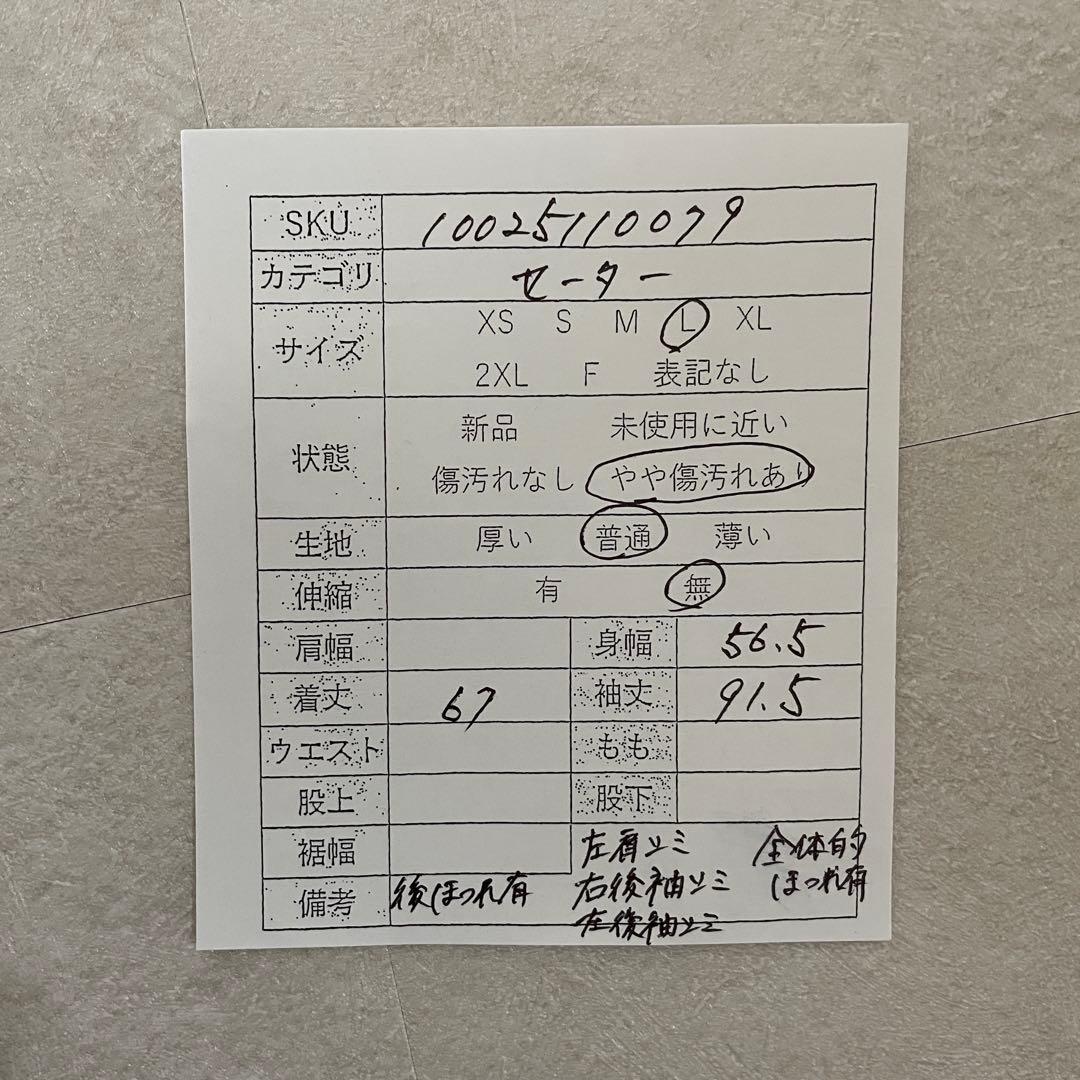 SKU 10025110079
カテゴリ セーター
サイズ XS S M L XL
2XL F 表記なし
状態 新品 未使用に近い
傷汚れなし やや傷汚れあり
生地 厚い 普通 薄い
伸縮 有 無
肩幅 身幅 56.5
着丈 67 袖丈 91.5
ウエスト もも
股上 股下
裾幅 左肩シミ 全体的
備考 後ほつれ有 右後袖シミ ほつれ有
左後袖シミ